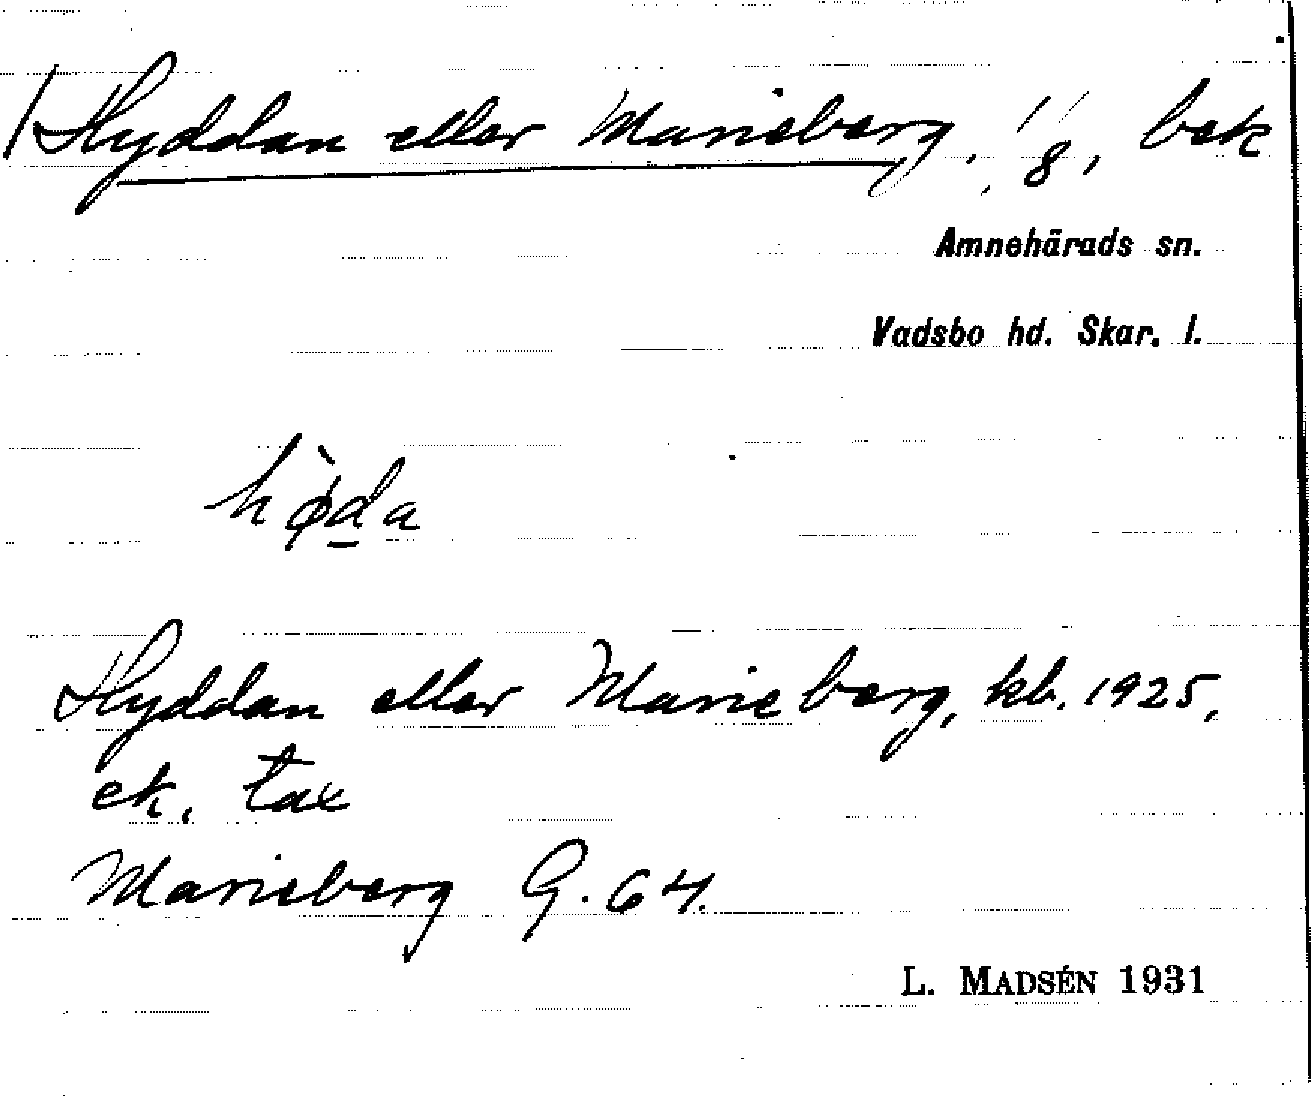 /Hyddan eller Marieberg, 1/8, bek
Amnehärads sn.
Vadsbo hd. Skar. l.
hø̀da
Hyddan eller Marieberg, kb. 1925,
ek. tax
Marieberg G. 64.
L. MADSÉN 1931